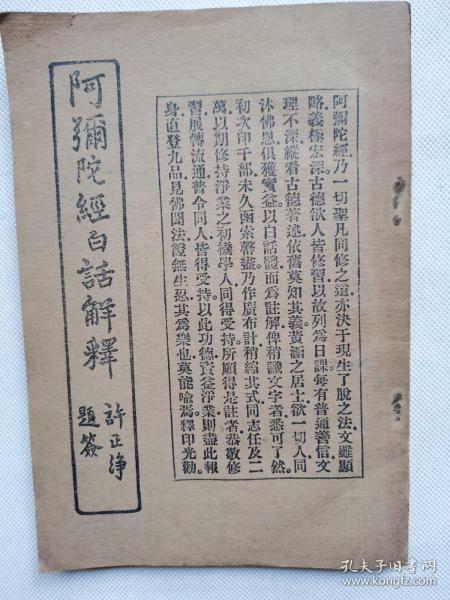 阿彌陀經乃一切聖凡同修之道亦決于現生了脫之法文雖顯
略義極宏深古德欲人皆修習以故列爲日課每有普通善信文
理不深縱看古德著述依舊莫知其義黃涵之居士欲一切人同
沐佛恩俱獲實益以白話體而爲註解俾稍識文字者悉可了然
初次印千部未久函索罄盡乃作廣布計稍縮其式同志任及二
萬以期修持淨業之初機學人同得受持所願得是註者恭敬修
習展轉流通普令同人皆得受持以此功德資益淨業則盡此報
身直登九品見佛聞法證無生忍其爲樂也莫能喻焉釋印光勸
阿彌陀經白話解釋
許正淨
題簽
孔夫子旧书网
www.kongfz.com